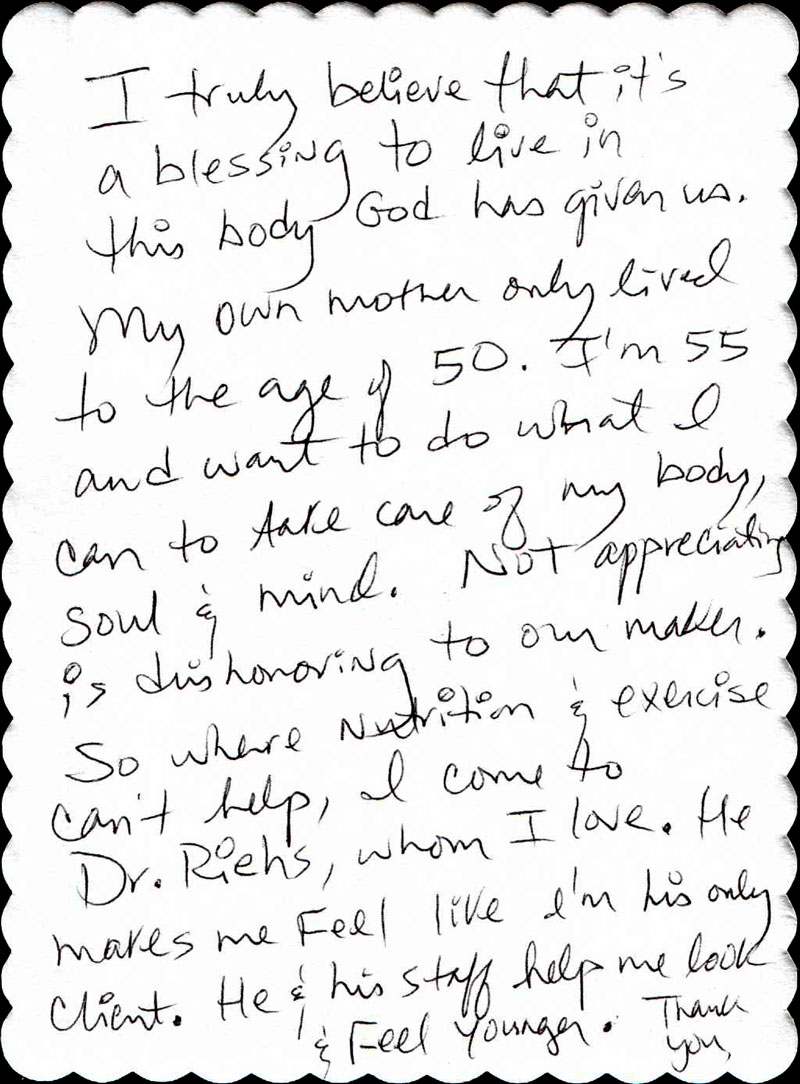 I truly believe that it's
a blessing to live in
this body God has given us.
My own mother only lived
to the age of 50. I'm 55
and want to do what I
can to take care of my body,
soul & mind. Not appreciating
is dishonoring to our maker.
So where Nutrition & exercise
can't help, I come to
Dr. Riehs, whom I love. He
makes me Feel like I'm his only
client. He & his staff help me look
& Feel Younger. Thank
You,